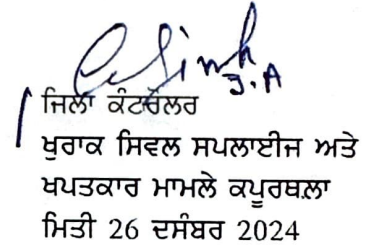 J.A
ਜਿਲਾ ਕੰਟਰੋਲਰ
ਖੁਰਾਕ ਸਿਵਲ ਸਪਲਾਈਜ ਅਤੇ
ਖਪਤਕਾਰ ਮਾਮਲੇ ਕਪੂਰਥਲਾ
ਮਿਤੀ 26 ਦਸੰਬਰ 2024